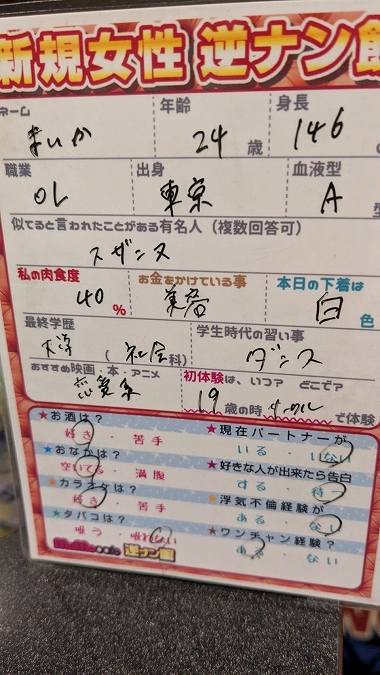 新規女性 逆ナン館
ネーム 年齢 身長
まいか 24歳 146
職業 出身 血液型
OL 東京 A型
似てると言われたことがある有名人(複数回答可)
スザンヌ
私の肉食度 お金をかけている事 本日の下着は
40% 美容 白色
最終学歴 学生時代の習い事
大学(社会科) ダンス
おすすめ映画・本・アニメ 初体験は、いつ? どこで?
恋愛系 19歳の時、サークルで体験
★お酒は? ★現在パートナーが
好き・苦手 いる・いない
★おなかは? ★好きな人が出来たら告白
空いてる・満腹 する・待つ
★カラオケは? ★浮気不倫経験が
好き・苦手 ある・ない
★タバコは? ★ワンチャン経験?
吸う・吸わない ある・ない
cafe 逆ナン館